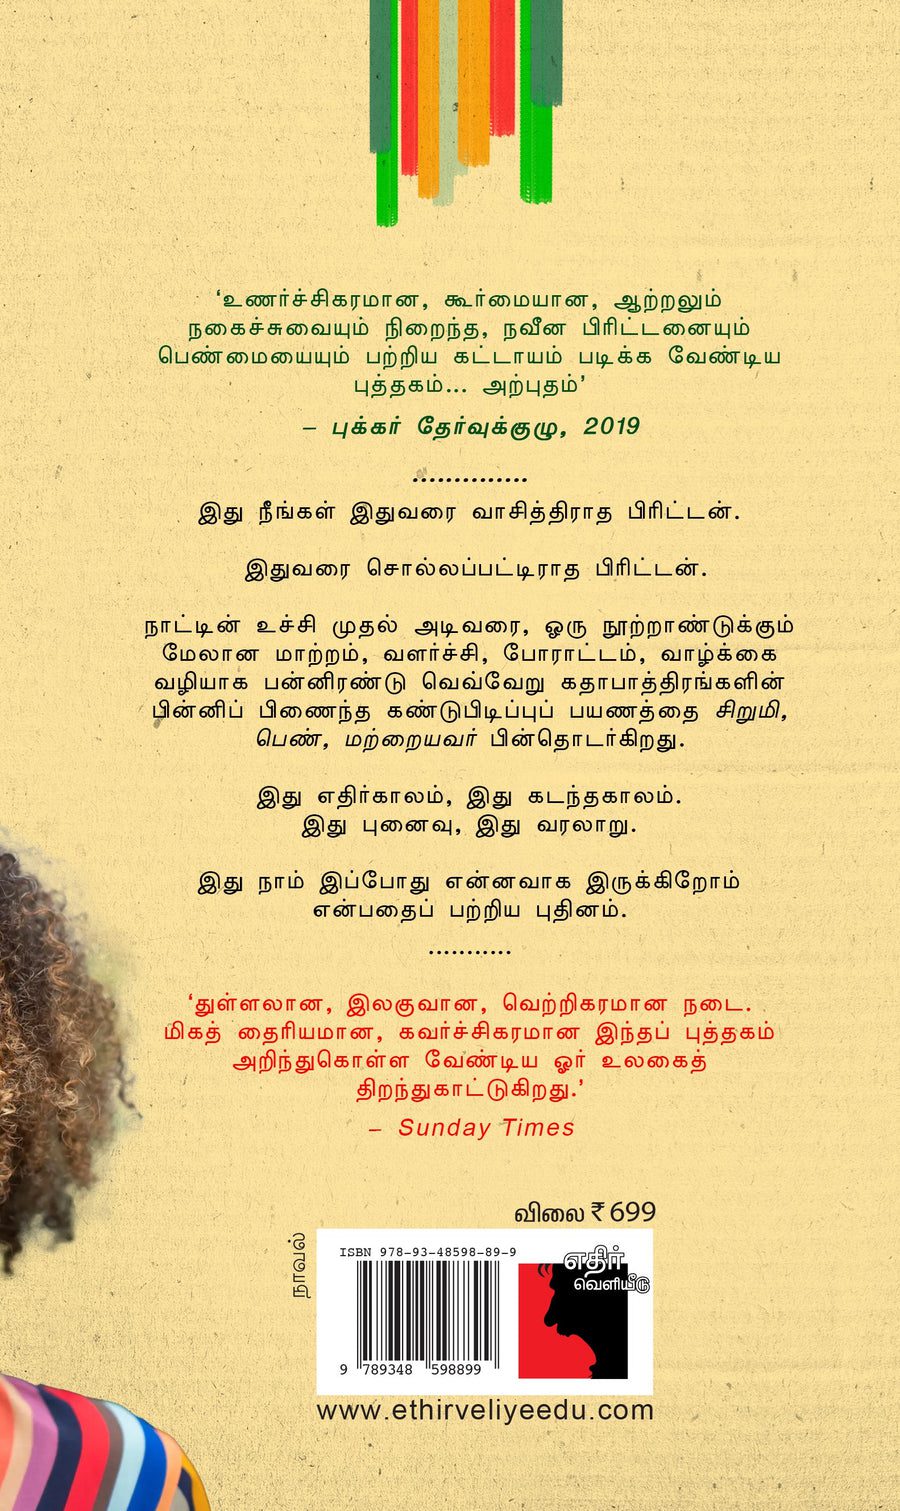 ‘உணர்ச்சிகரமான, கூர்மையான, ஆற்றலும்
நகைச்சுவையும் நிறைந்த, நவீன பிரிட்டனையும்
பெண்மையையும் பற்றிய கட்டாயம் படிக்க வேண்டிய
புத்தகம்... அற்புதம்’
– புக்கர் தேர்வுக்குழு, 2019
..............
இது நீங்கள் இதுவரை வாசித்திராத பிரிட்டன்.
இதுவரை சொல்லப்பட்டிராத பிரிட்டன்.
நாட்டின் உச்சி முதல் அடிவரை, ஒரு நூற்றாண்டுக்கும்
மேலான மாற்றம், வளர்ச்சி, போராட்டம், வாழ்க்கை
வழியாக பன்னிரண்டு வெவ்வேறு கதாபாத்திரங்களின்
பின்னிப் பிணைந்த கண்டுபிடிப்புப் பயணத்தை சிறுமி,
பெண், மற்றையவர் பின்தொடர்கிறது.
இது எதிர்காலம், இது கடந்தகாலம்.
இது புனைவு, இது வரலாறு.
இது நாம் இப்போது என்னவாக இருக்கிறோம்
என்பதைப் பற்றிய புதினம்.
...........
‘துள்ளலான, இலகுவான, வெற்றிகரமான நடை.
மிகத் தைரியமான, கவர்ச்சிகரமான இந்தப் புத்தகம்
அறிந்துகொள்ள வேண்டிய ஓர் உலகைத்
திறந்துகாட்டுகிறது.’
– Sunday Times
விலை ₹ 699
நாவல்
ISBN 978-93-48598-89-9
எதிர்
வெளியீடு
9 789348 598899
www.ethirveliyeedu.com